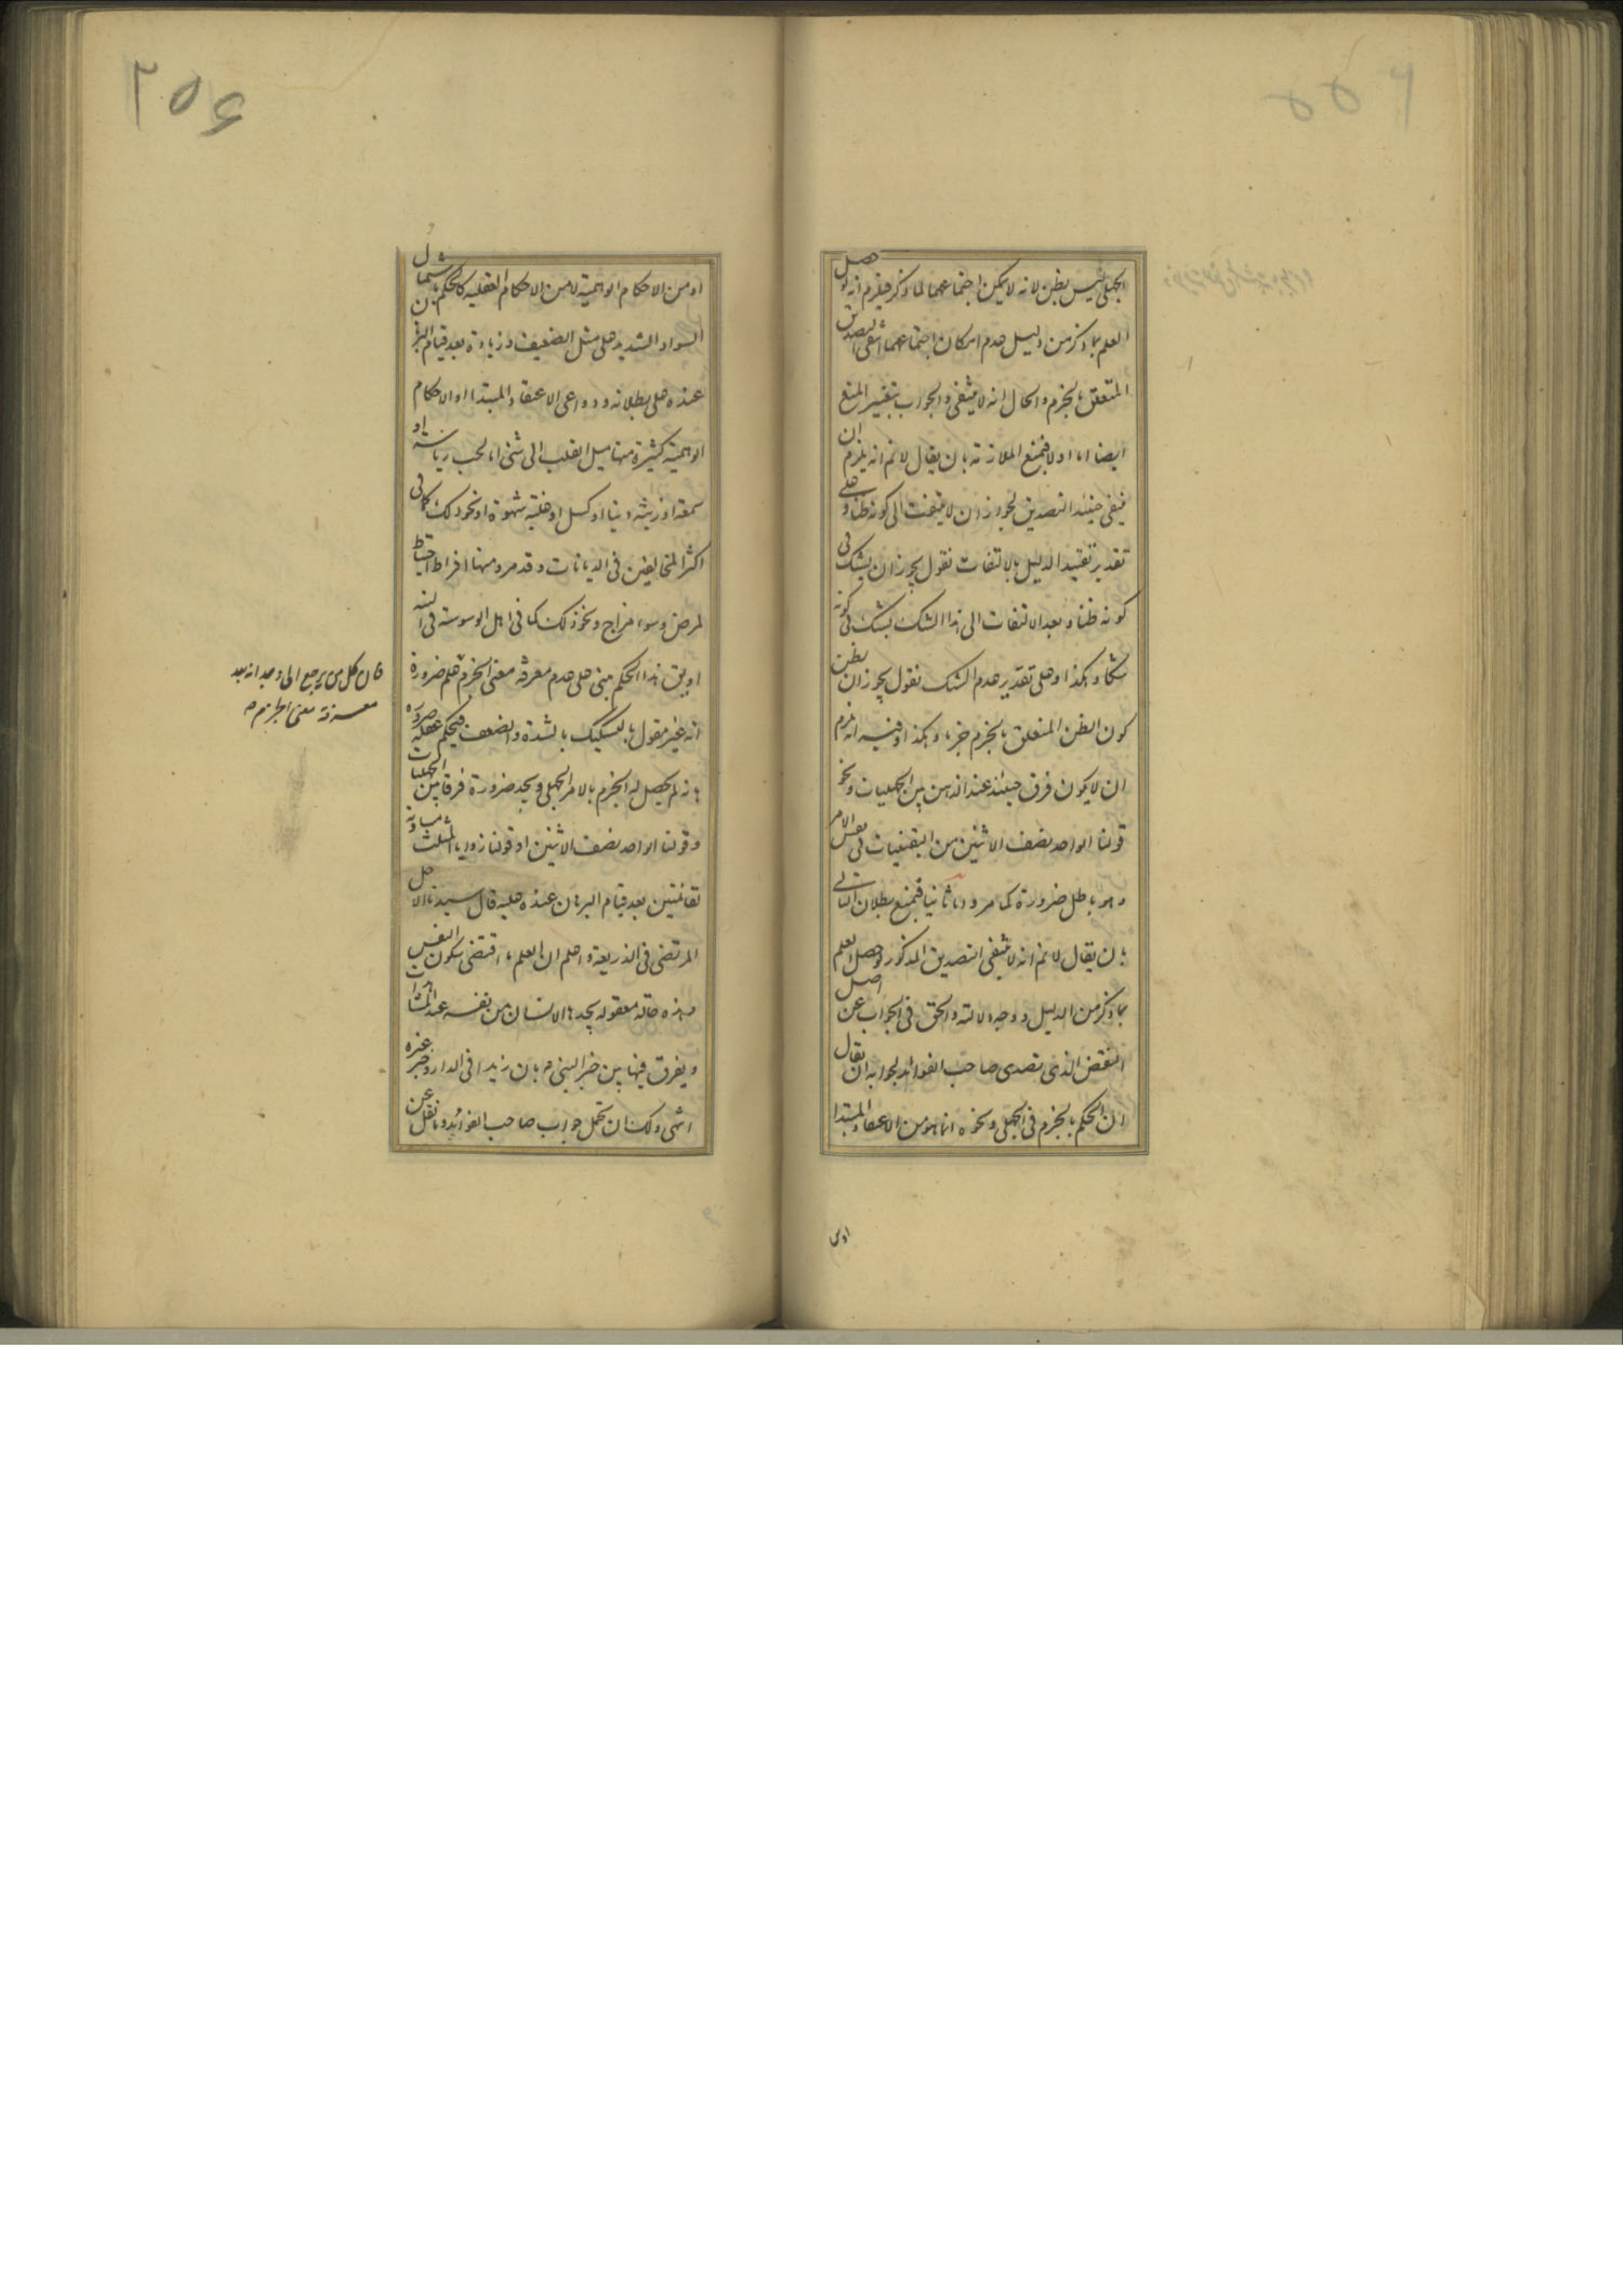 الجهلي ليس بظن لانه لا يمكن اجتماعهما لما ذكر فيلزم انه لو حصل
العلم بما ذكر من دليل عدم امكان اجتماعهما انتفى التصديق
المتعلق بالجزم والحال انه لا ينتفي والجواب بتغيير المنع
ايضا اما اولا فبمنع الملازمة بان يقال لا نم انه يلزم ان
ينتفي حينئذ التصديق لجواز ان لا يلتفت الى كونه ظنا وعلى
تقدير تقييد الدليل بالالتفات نقول يجوز ان يشك في
كونه ظنا وبعد الالتفات الى هذا الشك يشك في كونه
شكا وهكذا وعلى تقدير عدم الشك نقول يجوز ان يظن
كون الظن المتعلق بالجزم جزما وهكذا وفيه انه يلزم
ان لا يكون فرق حينئذ عند الذهن بين الجهليات ونحو
قولنا الواحد نصف الاثنين من اليقينيات في نفس الامر
وهو باطل ضرورة كما مر واما ثانيا فبمنع بطلان التالي
بان يقال لا نم انه لا ينتفي التصديق المذكور لو حصل العلم
بما ذكر من الدليل ووجه دلالته والحق في الجواب عن اصل
النقض الذي تصدى صاحب الفوائد لجوابه ان يقال
ان الحكم بالجزم في الجهلي ونحوه انما هو من الاعتقاد المبتدا
او من
٢٥۶
او من الاحكام الوهمية لا من الاحكام العقلية كالحكم باشتمال
السواد الشديد على مثل الضعيف وزيادة بعد قيام البرهان
عنده على بطلانه ودواعي الاعتقاد المبتدا او الاحكام
الوهمية كثيرة منها ميل القلب الى شئ اما لحب رياسة او
سمعة او زينة دنيا او كسل او غلبة شهوة او نحو ذلك كما في
اكثر المخالفين في الديانات وقد مر ومنها افراط احتياط
لمرض وسوء مزاج ونحو ذلك كما في اهل الوسوسة في النية
او يق هذا الحكم مبني على عدم معرفة معنى الجزم علم ضرورة
انه غير مقول بالتشكيك بالشدة والضعف فيحكم عقله ضرورة
بانه لم يحصل له الجزم بالامر الجهلي ويجد ضرورة فرقا بين الجهليات
وقولنا الواحد نصف الاثنين او قولنا زوايا المثلث مساوية
لقائمتين بعد قيام البرهان عنده عليه قال سيدنا الاجل
المرتضى في الذريعة واعلم ان العلم ما اقتضى سكون النفس
وهذه حالة معقولة يجدها الانسان من نفسه عند المشاهدات
ويفرق فيها بين خبر النبي ص بان زيدا في الدار وخبر غيره
انتهى ولك ان تحمل جواب صاحب الفوائد وما نقل عن
فان كل من يرجع الى وجدانه بعد
معرفة معنى الجزم م